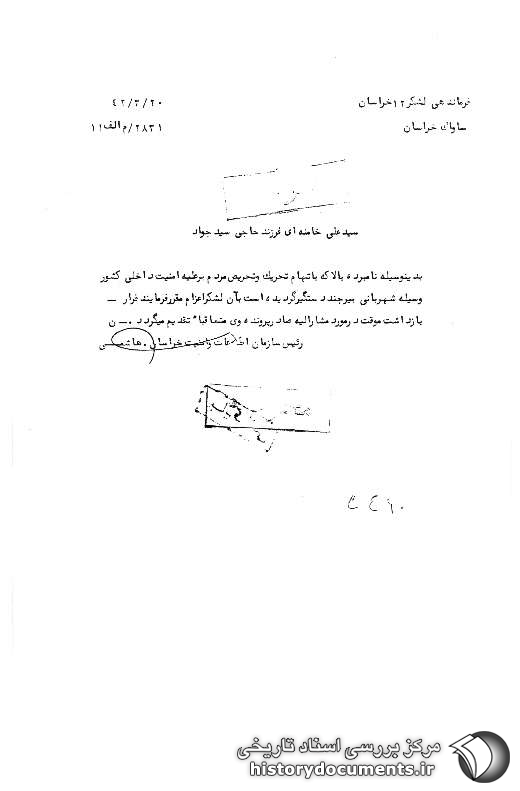 فرماندهی لشکر ۱۲ خراسان
۴۲/۳/۲۰
ساواک خراسان
۲۸۳۱/م الف ۱۱
سید علی خامنه ای فرزند حاجی سید جواد
بدینوسیله نامبرده بالا که باتهام تحریک و تحریص مردم برعلیه امنیت داخلی کشور
وسیله شهربانی بیرجند دستگیر گردیده است بآن لشکر اعزام مقرر فرمایند قرار ـ
بازداشت موقت در مورد مشارالیه صادر پرونده وی متعاقباً تقدیم میگردد . ـ ن
رئیس سازمان اطلاعات و امنیت خراسان . هاشمی
مرکز بررسی اسناد تاریخی
historydocuments.ir